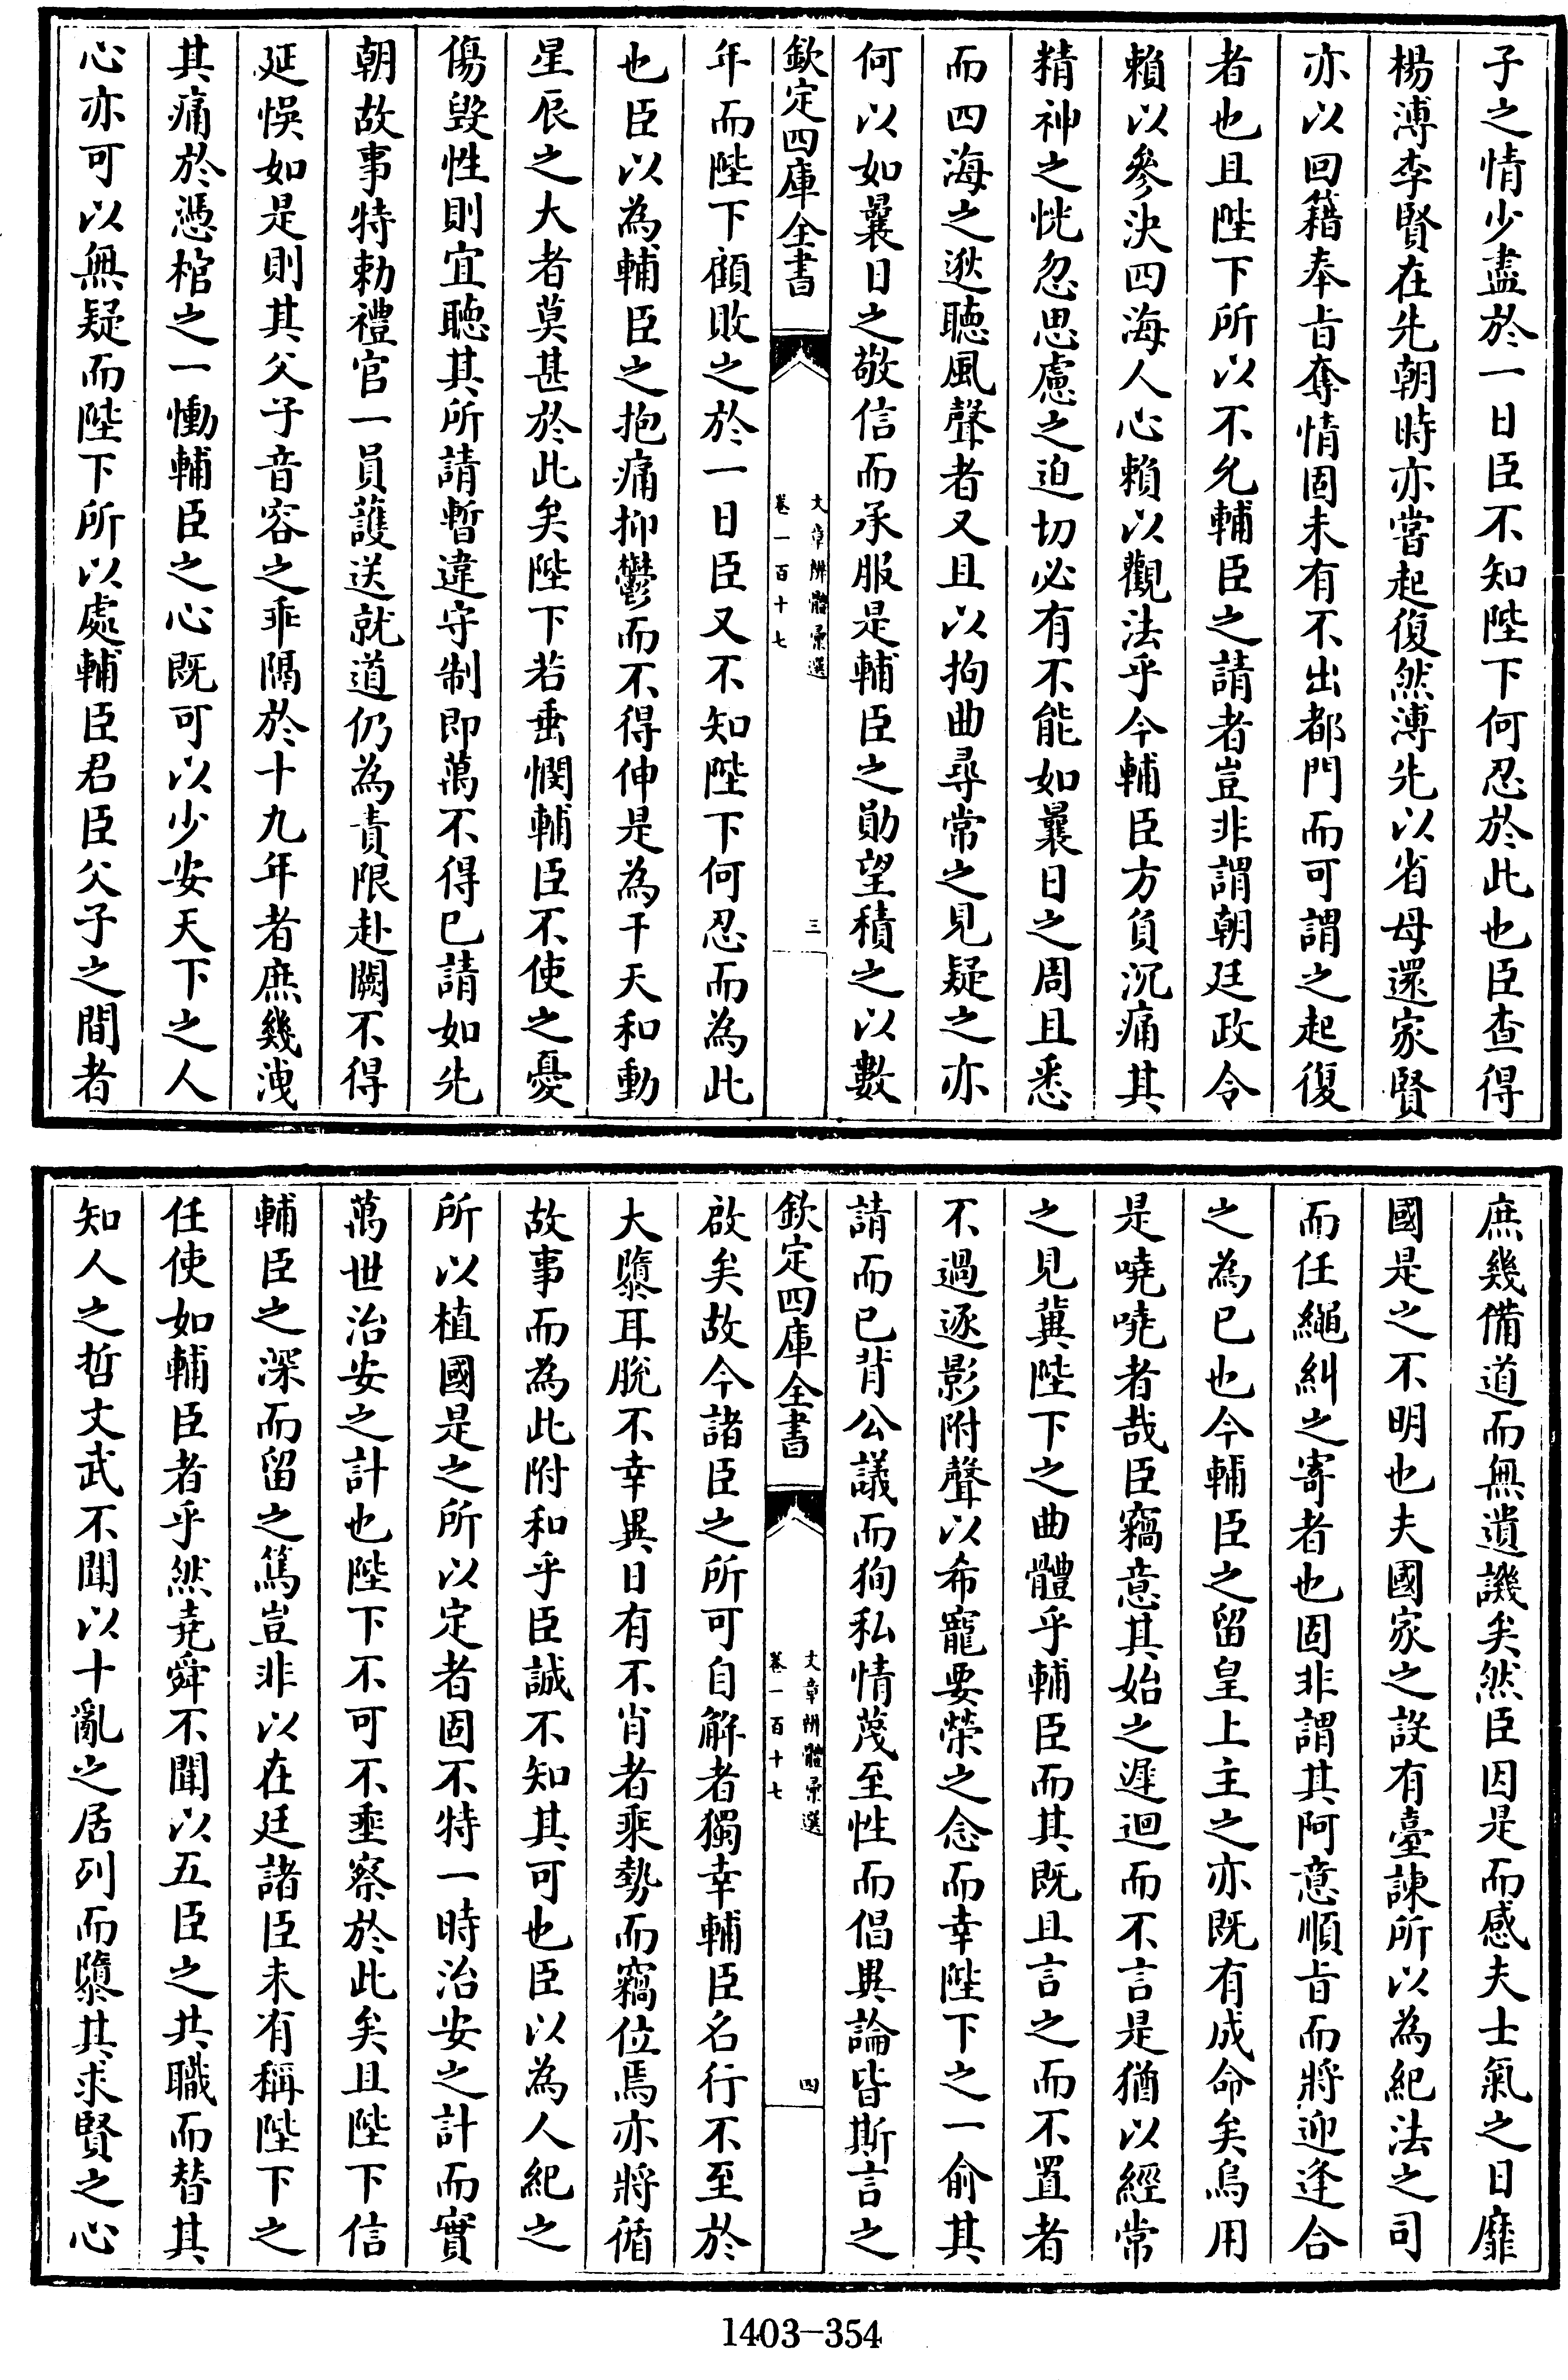 子之情少盡於一日臣不知陛下何忍於此也臣查得
楊溥李賢在先朝時亦嘗起復然溥先以省母還家賢
亦以回籍奉㫖奪情固未有不出都門而可謂之起復
者也且陛下所以不允輔臣之請者豈非謂朝廷政令
賴以參決四海人心賴以觀法乎今輔臣方負沉痛其
精神之恍忽思慮之迫切必有不能如曩日之周且悉
而四海之逖聽風聲者又且以拘曲尋常之見疑之亦
何以如曩日之敬信而承服是輔臣之勛望積之以數
欽定四庫全書
文章辨體彙選
卷一百十七
三
年而陛下顧敗之於一日臣又不知陛下何忍而為此
也臣以為輔臣之抱痛抑鬱而不得伸是為干天和動
星辰之大者莫甚於此矣陛下若垂憫輔臣不使之憂
傷毀性則宜聽其所請暫違守制即萬不得已請如先
朝故事特勅禮官一員護送就道仍為責限赴闕不得
延悞如是則其父子音容之乖隔於十九年者庶幾洩
其痛於憑棺之一慟輔臣之心既可以少安天下之人
心亦可以無疑而陛下所以處輔臣君臣父子之間者
庶幾備道而無遺譏矣然臣因是而感夫士氣之日靡
國是之不明也夫國家之設有臺諫所以為紀法之司
而任繩糾之寄者也固非謂其阿意順㫖而將迎逢合
之為已也今輔臣之留皇上主之亦既有成命矣烏用
是嘵嘵者哉臣竊意其始之遲迴而不言是猶以經常
之見冀陛下之曲體乎輔臣而其既且言之而不置者
不過逐影附聲以希寵要榮之念而幸陛下之一俞其
請而已背公議而狥私情蔑至性而倡異論皆斯言之
欽定四庫全書
文章辨體彙選
卷一百十七
四
啟矣故今諸臣之所可自解者獨幸輔臣名行不至於
大隳耳脫不幸異日有不肖者乘勢而竊位焉亦將循
故事而為此附和乎臣誠不知其可也臣以為人紀之
所以植國是之所以定者固不特一時治安之計而實
萬世治安之計也陛下不可不垂察於此矣且陛下信
輔臣之深而留之篤豈非以在廷諸臣未有稱陛下之
任使如輔臣者乎然堯舜不聞以五臣之共職而替其
知人之哲文武不聞以十亂之居列而隳其求賢之心
1403-354